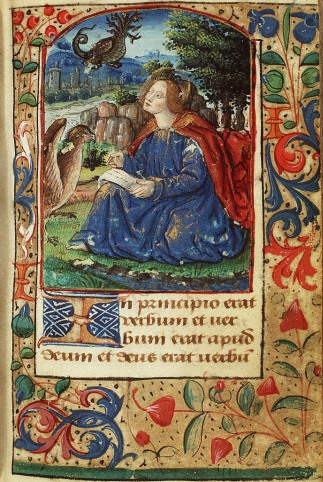 In principio erat
verbum et ver
bum erat apud
deum et deus erat verbū